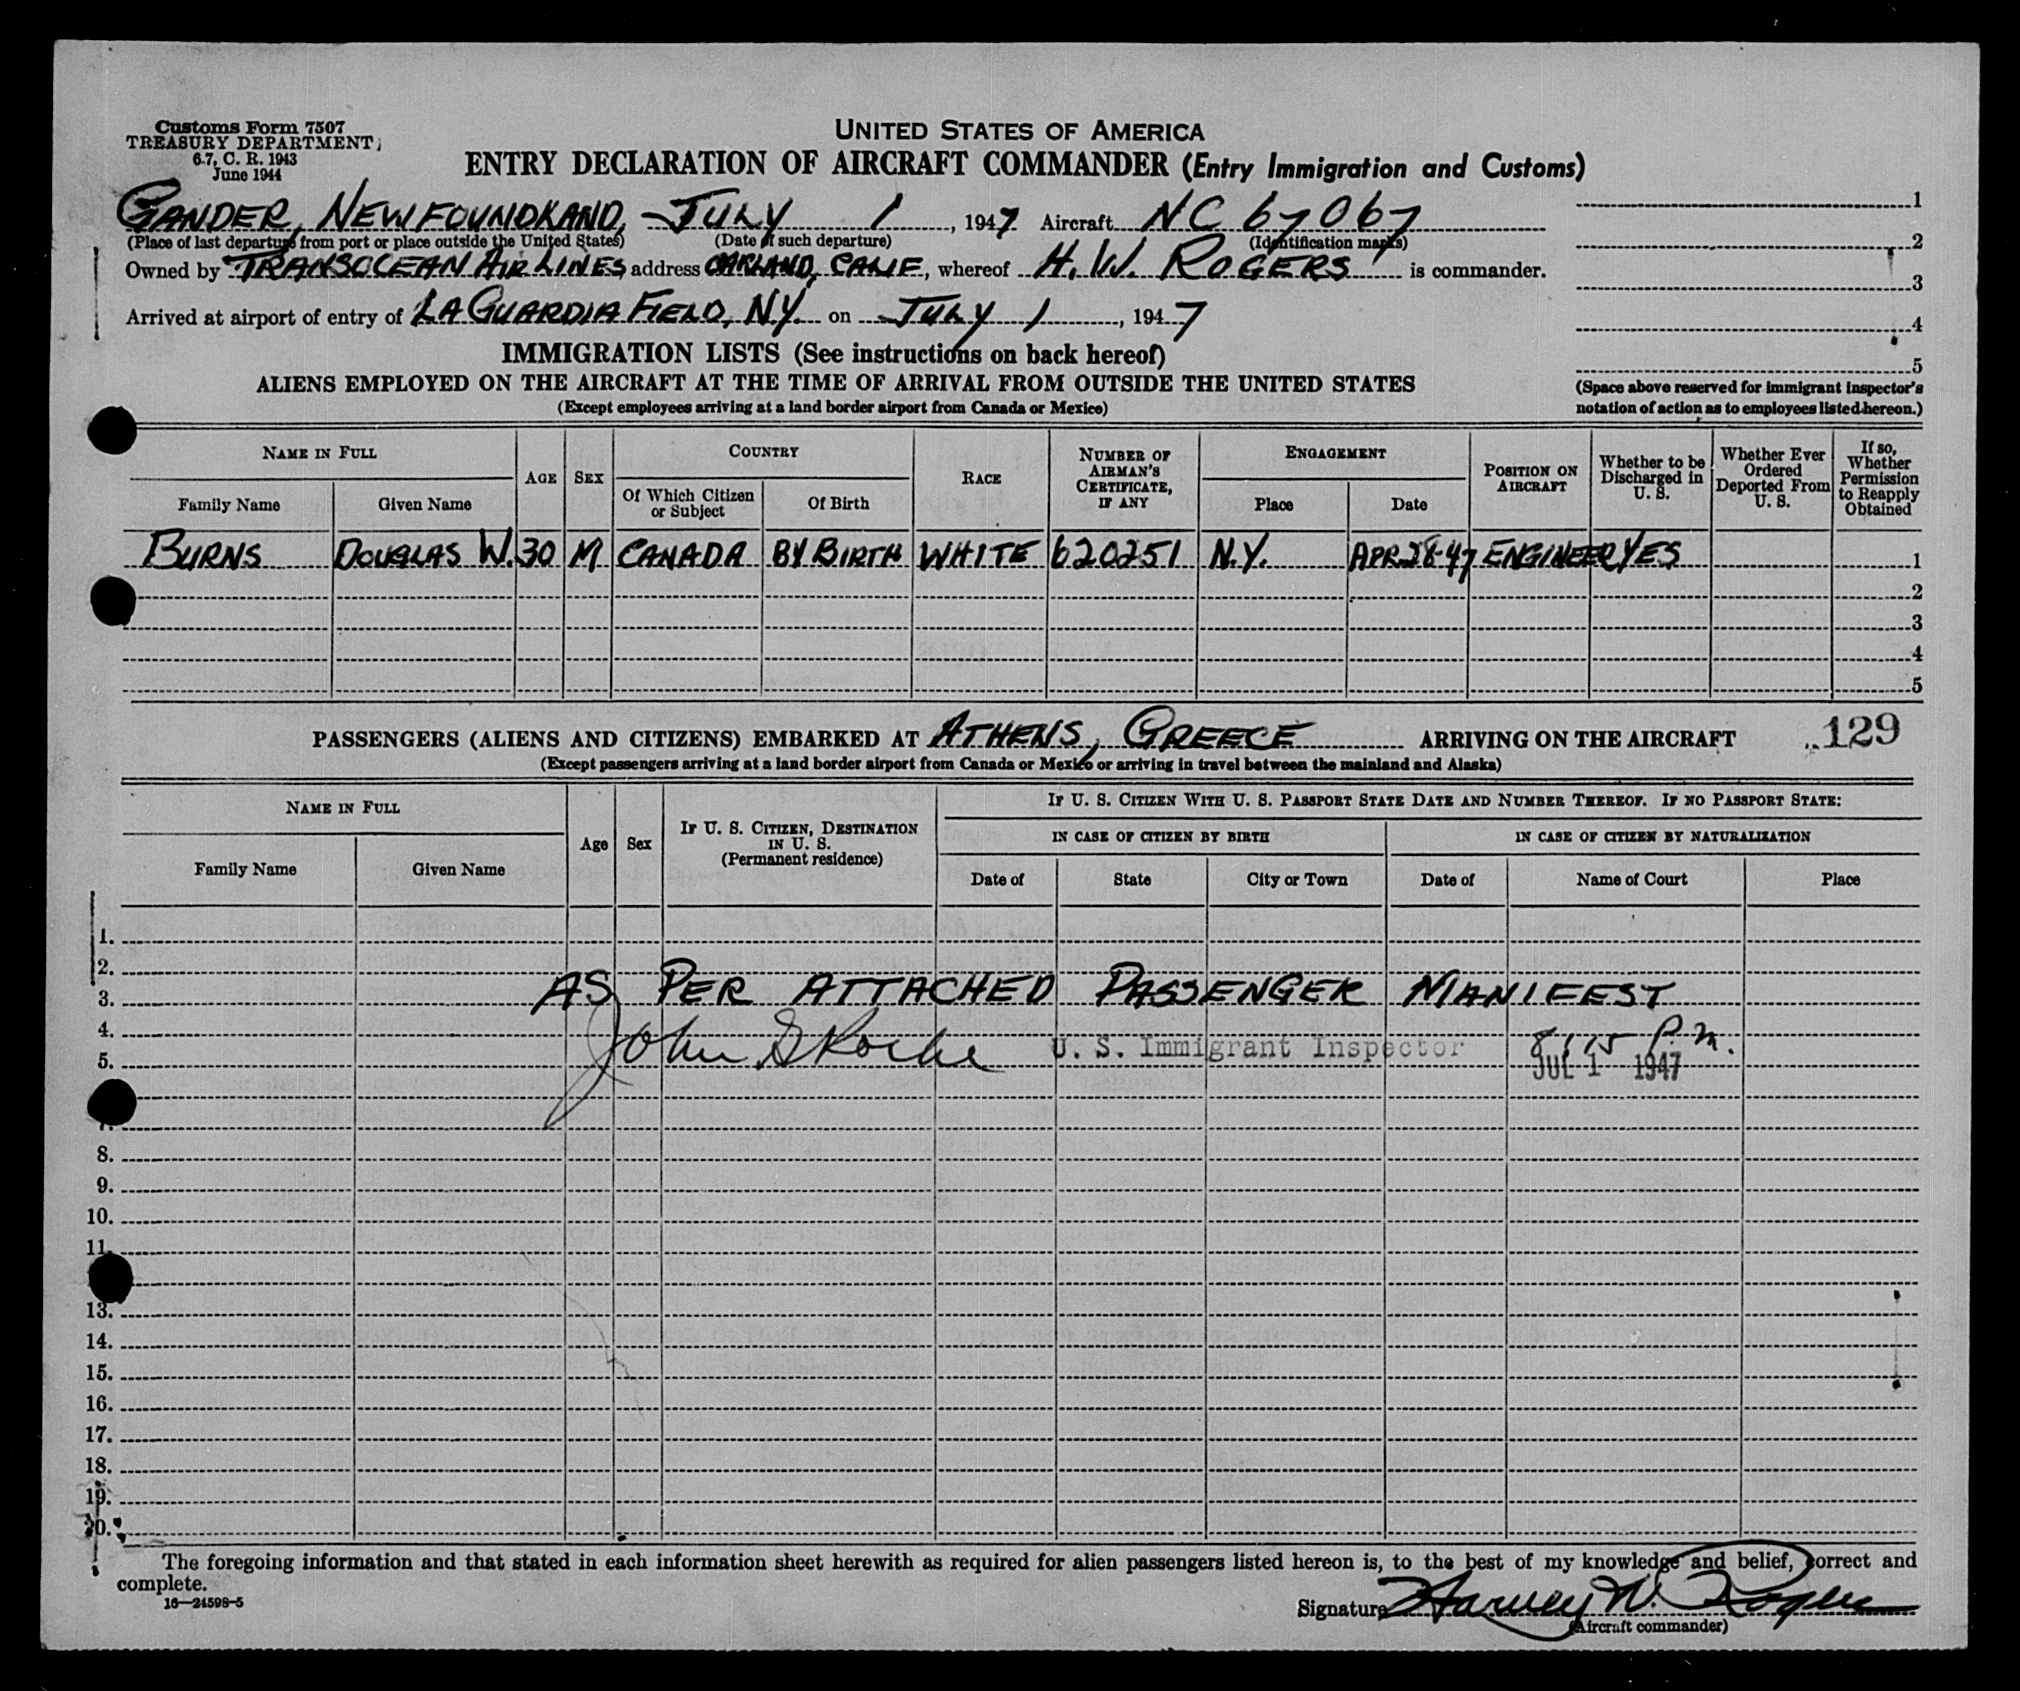 Customs Form 7507
TREASURY DEPARTMENT
6.7, C. R. 1943
June 1944
UNITED STATES OF AMERICA
ENTRY DECLARATION OF AIRCRAFT COMMANDER (Entry Immigration and Customs)
GANDER, NEWFOUNDLAND, JULY 1, 1947 Aircraft NC 67067
(Place of last departure from port or place outside the United States) (Date of such departure) (Identification marks)
Owned by TRANSOCEAN AIR LINES address OAKLAND, CALIF, whereof H. W. ROGERS is commander.
Arrived at airport of entry of LA GUARDIA FIELD, N.Y. on JULY 1, 1947
1
2
3
4
5
(Space above reserved for immigrant inspector's
notation of action as to employees listed hereon.)
IMMIGRATION LISTS (See instructions on back hereof)
ALIENS EMPLOYED ON THE AIRCRAFT AT THE TIME OF ARRIVAL FROM OUTSIDE THE UNITED STATES
(Except employees arriving at a land border airport from Canada or Mexico)
NAME IN FULL
Family Name Given Name
AGE SEX
COUNTRY
Of Which Citizen or Subject Of Birth
RACE
NUMBER OF AIRMAN'S CERTIFICATE, IF ANY
ENGAGEMENT
Place Date
POSITION ON AIRCRAFT
Whether to be Discharged in U. S.
Whether Ever Ordered Deported From U. S.
If so, Whether Permission to Reapply Obtained
BURNS DOUGLAS W. 30 M CANADA BY BIRTH WHITE 620251 N.Y. APR 28-47 ENGINEER YES 1
2
3
4
5
PASSENGERS (ALIENS AND CITIZENS) EMBARKED AT ATHENS, GREECE ARRIVING ON THE AIRCRAFT 129
(Except passengers arriving at a land border airport from Canada or Mexico or arriving in travel between the mainland and Alaska)
NAME IN FULL
Family Name Given Name
Age Sex
IF U. S. CITIZEN, DESTINATION IN U. S.
(Permanent residence)
IF U. S. CITIZEN WITH U. S. PASSPORT STATE DATE AND NUMBER THEREOF. IF NO PASSPORT STATE:
IN CASE OF CITIZEN BY BIRTH IN CASE OF CITIZEN BY NATURALIZATION
Date of State City or Town Date of Name of Court Place
1.
2.
3. AS PER ATTACHED PASSENGER MANIFEST
4.
5. John S Roche U. S. Immigrant Inspector 8:15 P.M.
JUL 1 1947
7.
8.
9.
10.
11.
13.
14.
15.
16.
17.
18.
19.
20.
The foregoing information and that stated in each information sheet herewith as required for alien passengers listed hereon is, to the best of my knowledge and belief, correct and
complete.
16—24598-5
Signature Harvey W. Rogers
(Aircraft commander)